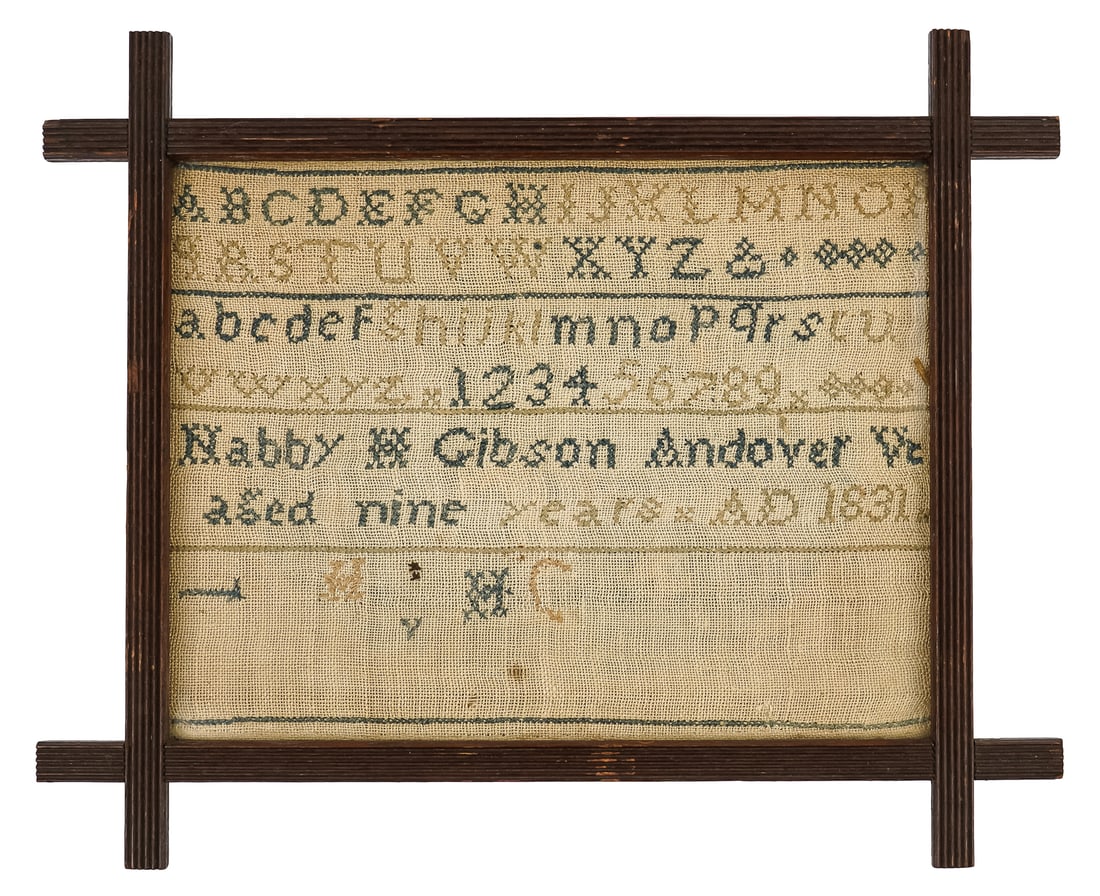 A B C D E F G H I J K L M N O P
Q R S T U V W X Y Z &
a b c d e f g h i j k l m n o p q r s t u
v w x y z 1 2 3 4 5 6 7 8 9
Nabby H Gibson Andover Vt
aged nine years AD 1831
H H C
y